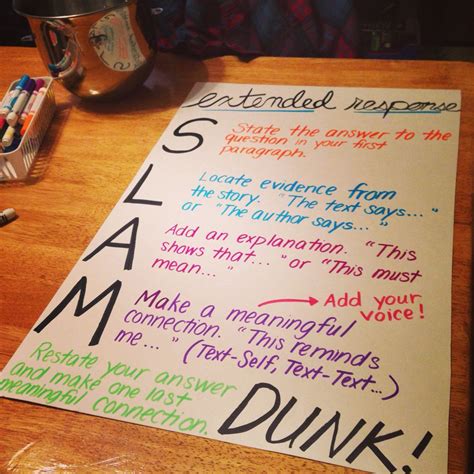 extended response
S State the answer to the
question in your first
paragraph.
L Locate evidence from
the story. "The text says..."
or "The author says..."
A Add an explanation. "This
shows that..." or "This must
mean..."
M Make a meaningful
connection. "This reminds
me..." (Text-Self, Text-Text...)
→ Add your
voice!
Restate your answer
and make one last
meaningful connection.
DUNK!